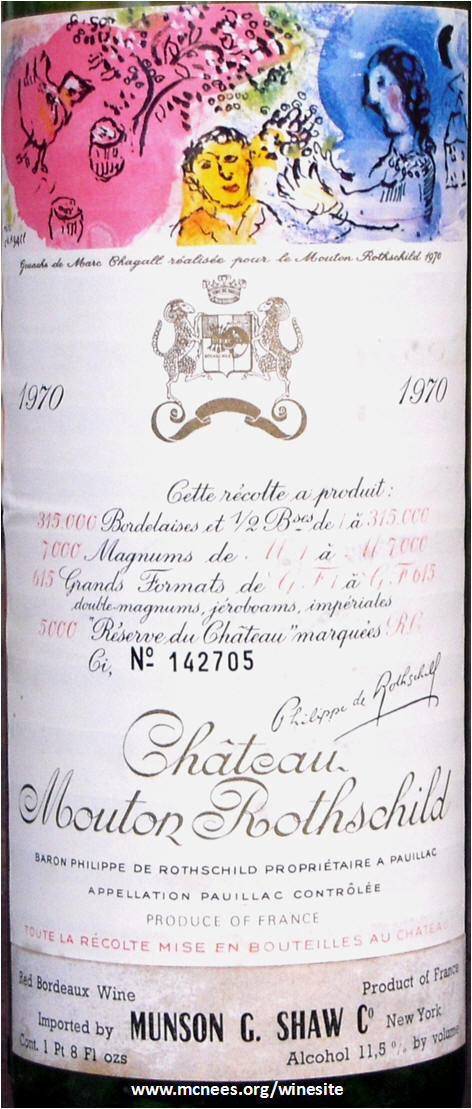 Marc
Chagall
Gouache de Marc Chagall réalisée pour le Mouton Rothschild 1970
1970
1970
Cette récolte a produit :
315.000 Bordelaises et 1/2 Bses de 1 à 315.000
7000 Magnums de M 1 à M 7000
615 Grands Formats de G F 1 à G F 615
double-magnums, jeroboams, impériales
5000 "Réserve du Château" marquées R.C.
Ci, Nº 142705
Philippe de Rothschild
Château
Mouton Rothschild
BARON PHILIPPE DE ROTHSCHILD PROPRIÉTAIRE A PAUILLAC
APPELLATION PAUILLAC CONTRÔLÉE
PRODUCE OF FRANCE
TOUTE LA RÉCOLTE MISE EN BOUTEILLES AU CHÂTEAU
Red Bordeaux Wine
Product of France
Imported by MUNSON G. SHAW Cº New York
Cont. 1 Pt 8 Fl ozs
Alcohol 11,5 % by volume
www.mcnees.org/winesite